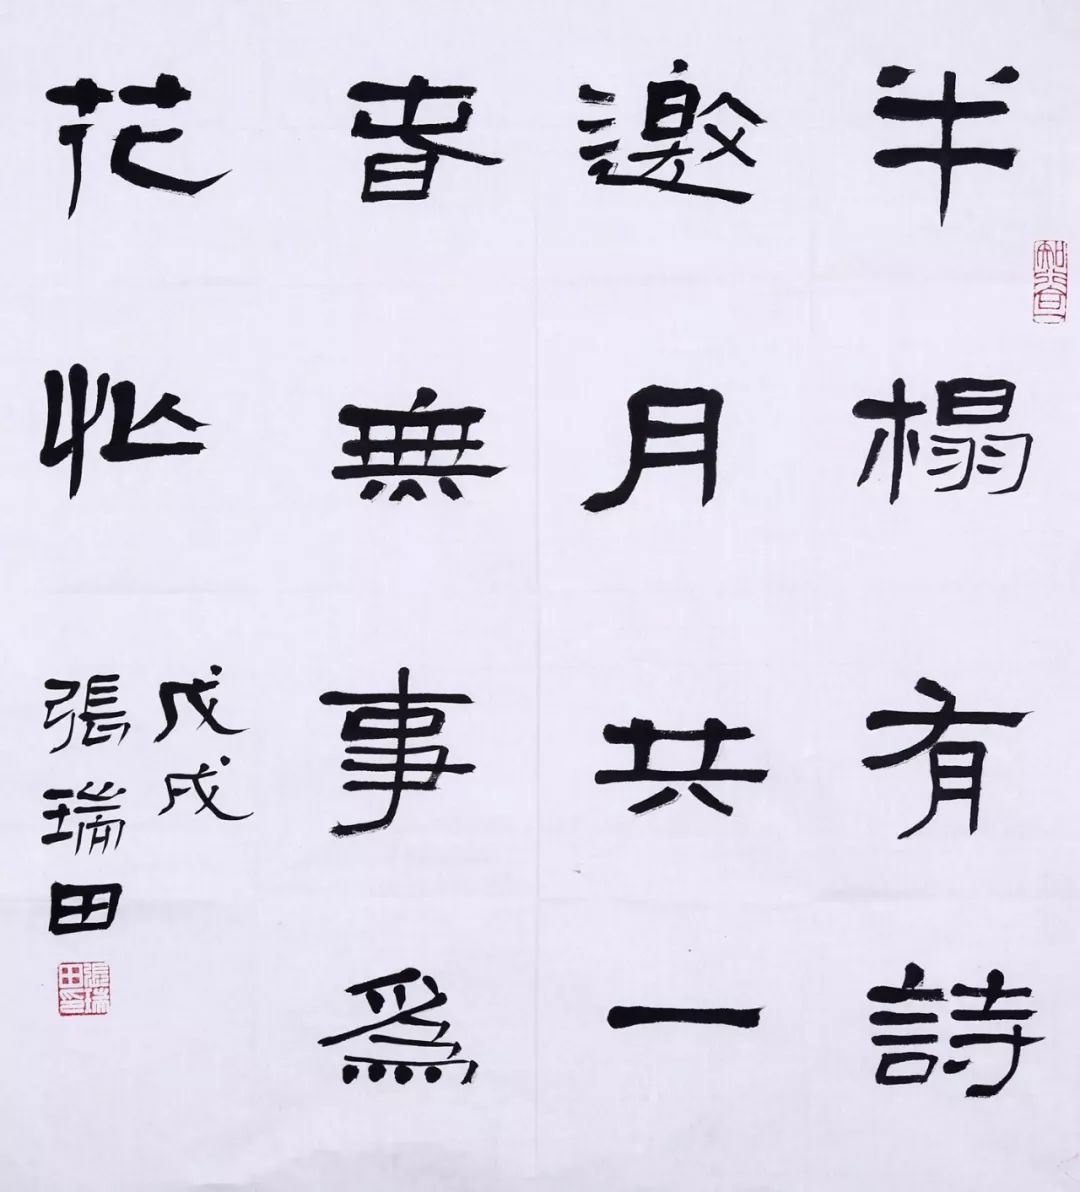 半榻有詩
邀月共一
春無事爲
花忙
戊戌
張瑞田
張瑞田印